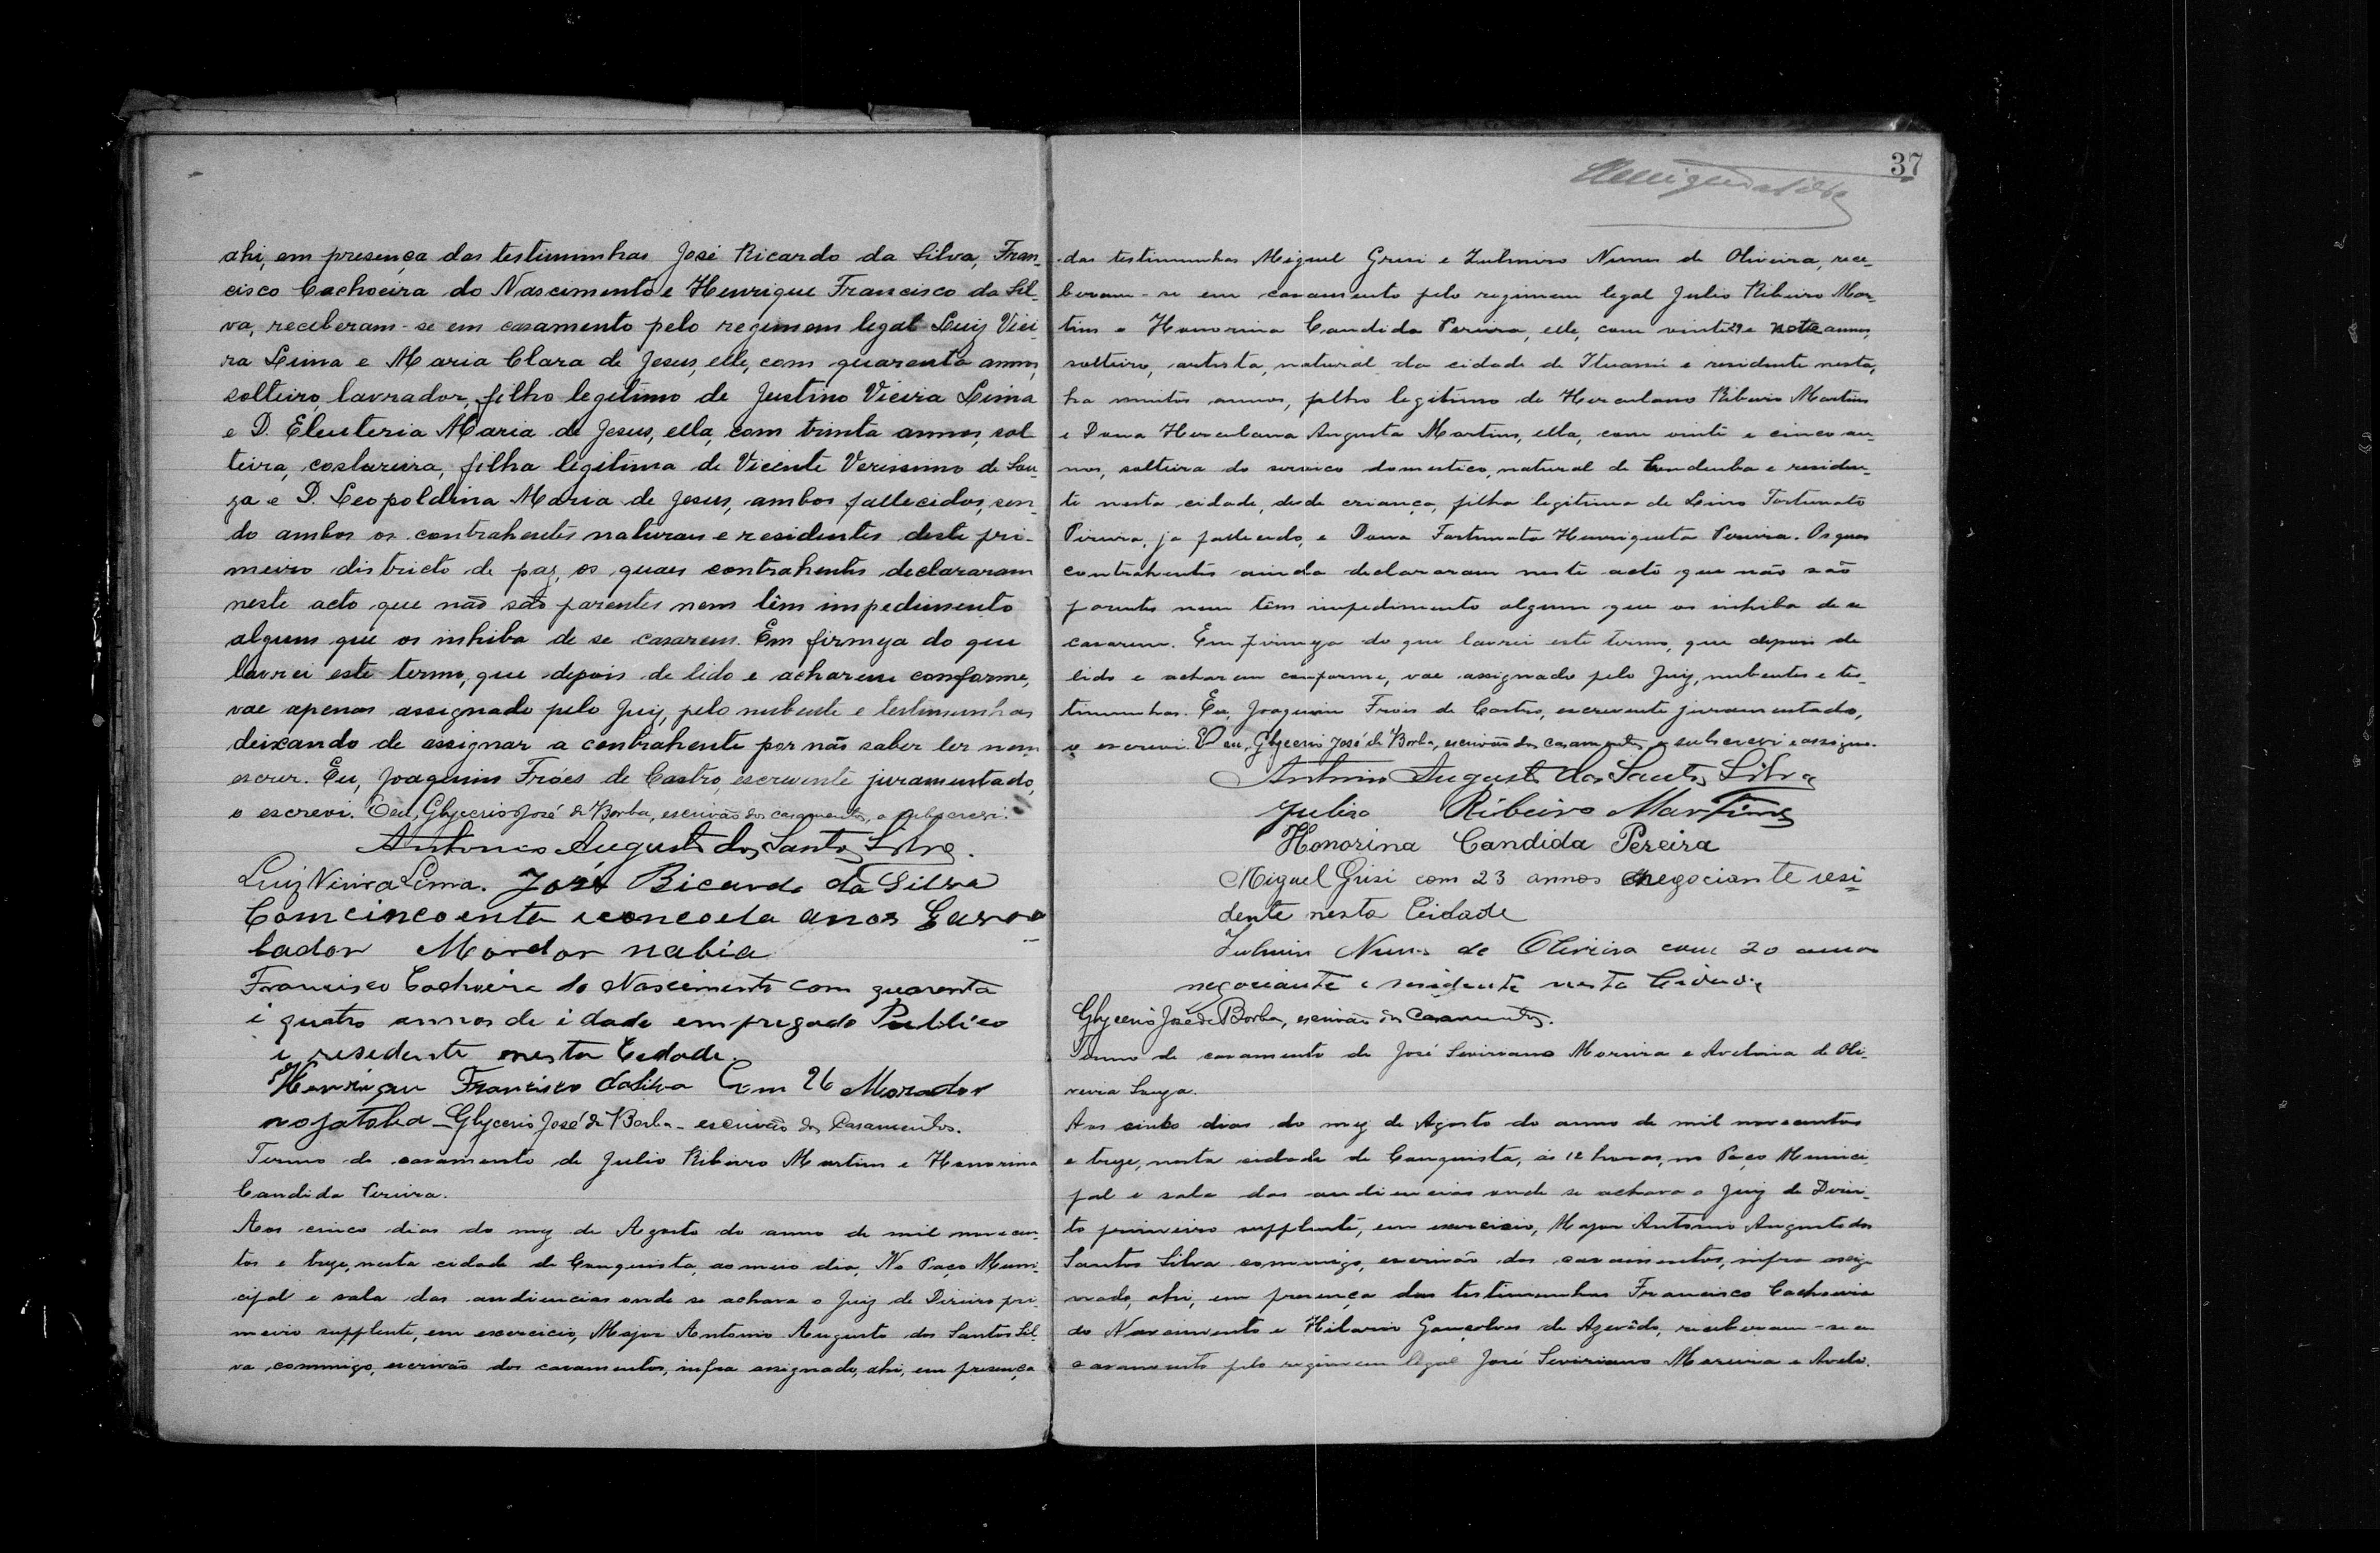 ahi, em presença das testimunhas José Ricardo da Silva, Fran-
cisco Cachoeira do Nascimento e Henrique Francisco da Sil-
va, receberam-se em casamento pelo regimem legal Luiz Viei-
ra Lima e Maria Clara de Jesus, elle, com quarenta annos,
solteiro, lavrador, filho legitimo de Justino Vieira Lima
e D. Eleuteria Maria de Jesus, ella, com trinta annos, sol-
teira, costureira, filha legitima de Vicente Verissimo de Sou-
za e D. Leopoldina Maria de Jesus, ambos fallecidos, sen-
do ambos os contrahentes naturaes e residentes deste pri-
meiro districto de paz, os quaes contrahentes declararam
neste acto que não são parentes nem têm impedimento
algum que os inhiba de se casarem. Em firmeza do que
lavrei este termo, que depois de lido e acharem conforme,
vae apenas assignado pelo Juiz, pelo nubente e testimunhas
deixando de assignar a contrahente por não saber ler nem
escrever. Eu, Joaquim Fróes de Castro, escrevente juramentado,
o escrevi. E eu, Glycerio José de Borba, escrivão dos casamentos, o subscrevi.
Antonio Augusto dos Santos Silva.
Luiz Vieira Lima. José Ricardo da Silva
Com cincoenta anos
lador Mordor nabia
Francisco Cachoeira do Nascimento com quarenta
i quatro annos de idade empregado Publico
i residente nesta Cedade.
Henrique Francisco da Silva Com 26 Morador
no Glycerio José de Borba - escrivão dos Casamentos.
Termo de casamento de Julio Ribeiro Martins e Honorina
Candida Pereira.
Aos cinco dias do mez de Agosto do anno de mil novecen-
tos e treze, nesta cidade de Conquista, ao meio dia, No Paço Muni-
cipal e sala das audiencias onde se achava o Juiz de Direito pri-
meiro supplente, em exercicio, Major Antonio Augusto dos Santos Sil-
va commigo, escrivão dos casamentos, infra assignado, ahi, em presença
37
das testimunhas Miguel Grisi e Zulmiro Nunes de Oliveira, rece-
beram-se em casamento pelo regimem legal Julio Ribeiro Mar-
tins e Honorina Candida Pereira, elle, com vinte e annos,
solteiro, artista, natural da cidade de Ituassú e residente nesta,
ha muitos annos, filho legitimo de Herculano Ribeiro Martins
e Dona Herculana Augusta Martins, ella, com vinte e cinco an-
nos, solteira do serviço domestico, natural de Condeuba e residen-
te nesta cidade, desde criança, filha legitima de Lino Fortunato
Pereira, já fallecido, e Dona Fortunata Henriqueta Pereira. Os quaes
contrahentes ainda declararam neste acto que não são
parentes nem têm impedimento algum que os inhiba de se
casarem. Em firmeza do que lavrei este termo, que depois de
lido e acharem conforme, vae assignado pelo Juiz, nubentes e tes-
timunhas. Eu, Joaquim Fróes de Castro, escrevente juramentado,
o escrevi. E eu, Glycerio José de Borba, escrivão dos casamentos, o subscrevi e assigno.
Antonio Augusto dos Santos Silva
Julio Ribeiro Martins
Honorina Candida Pereira
Miguel Grisi com 23 annos negociante resi-
dente nesta Cidade
Zulmiro Nunes de Oliveira com 20 annos
negociante e residente nesta Cidade
Glycerio José de Borba, escrivão dos Casamentos.
Termo de casamento de José Severiano Moreira e Avelina de Oli-
veira Souza.
Aos cinco dias do mez de Agosto do anno de mil novecentos
e treze, nesta cidade de Conquista, ás 12 horas, no Paço Munici-
pal e sala das audiencias onde se achava o Juiz de Direi-
to primeiro supplente, em exercicio, Major Antonio Augusto dos
Santos Silva commigo, escrivão dos casamentos, infra assig-
nado, ahi, em presença das testimunhas Francisco Cachoeira
do Nascimento e Hilario Gonçalves de Azevêdo, receberam-se em
casamento pelo regimem legal José Severiano Moreira e Aveli-